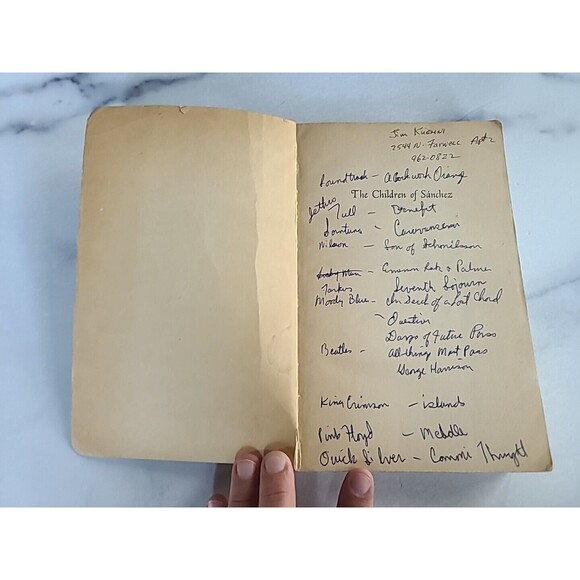 Jim
2544 N. Farwell Apt 2
962-0822
Soundtrack - a Clockwork Orange
The Children of Sánchez
Jethro
Tull - Benefit
Santana - Caravanserai
Nilson - Son of Schmilsson
Emerson Lake & Palmer
Tarkus Seventh Sojourn
Moody Blue - In Serch of a Lost Chord
- Question
Days of Future Pass
Beatles - all thing Must Pass
George Harrison
King Crimson - islands
Pink Floyd - Meddle
Quick Silver - Comin Thrught